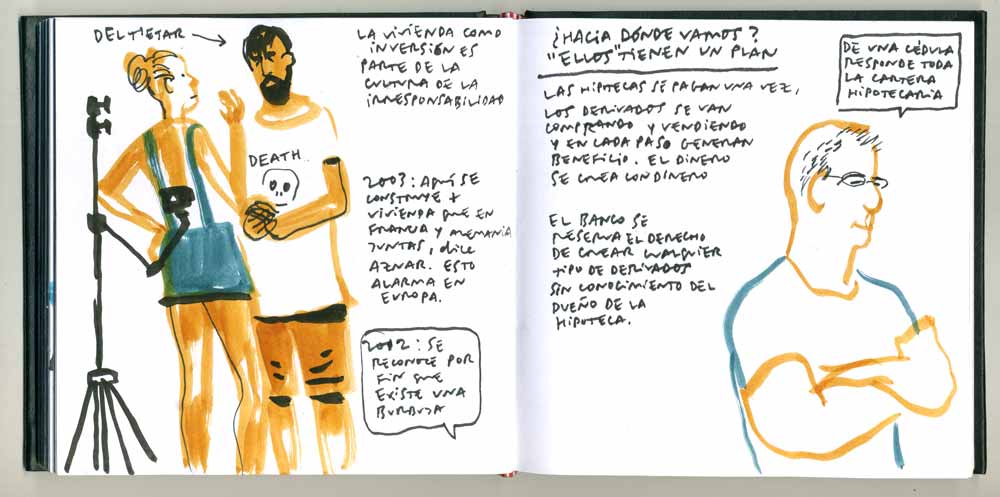 DELTIETAR →
DEATH
LA VIVIENDA COMO
INVERSIÓN ES
PARTE DE LA
CULTURA DE LA
IRRESPONSABILIDAD
2003: AQUÍ SE
CONSTRUYE +
VIVIENDA QUE EN
FRANCIA Y ALEMANIA
JUNTAS, DICE
AZNAR. ESTO
ALARMA EN
EUROPA.
2002: SE
RECONOCE POR
FIN QUE
EXISTE UNA
BURBUJA
¿HACIA DÓNDE VAMOS?
"ELLOS" TIENEN UN PLAN
LAS HIPTECAS SE PAGAN UNA VEZ,
LOS DERIVADOS SE VAN
COMPRANDO Y VENDIENDO
Y EN CADA PASO GENERAN
BENEFICIO. EL DINERO
SE CREA CON DINERO
EL BANCO SE
RESERVA EL DERECHO
DE CREAR CUALQUIER
TIPO DE DERIVADOS
SIN CONOCIMIENTO DEL
DUEÑO DE LA
HIPOTECA.
DE UNA CÉDULA
RESPONDE TODA
LA CARTERA
HIPOTECARIA